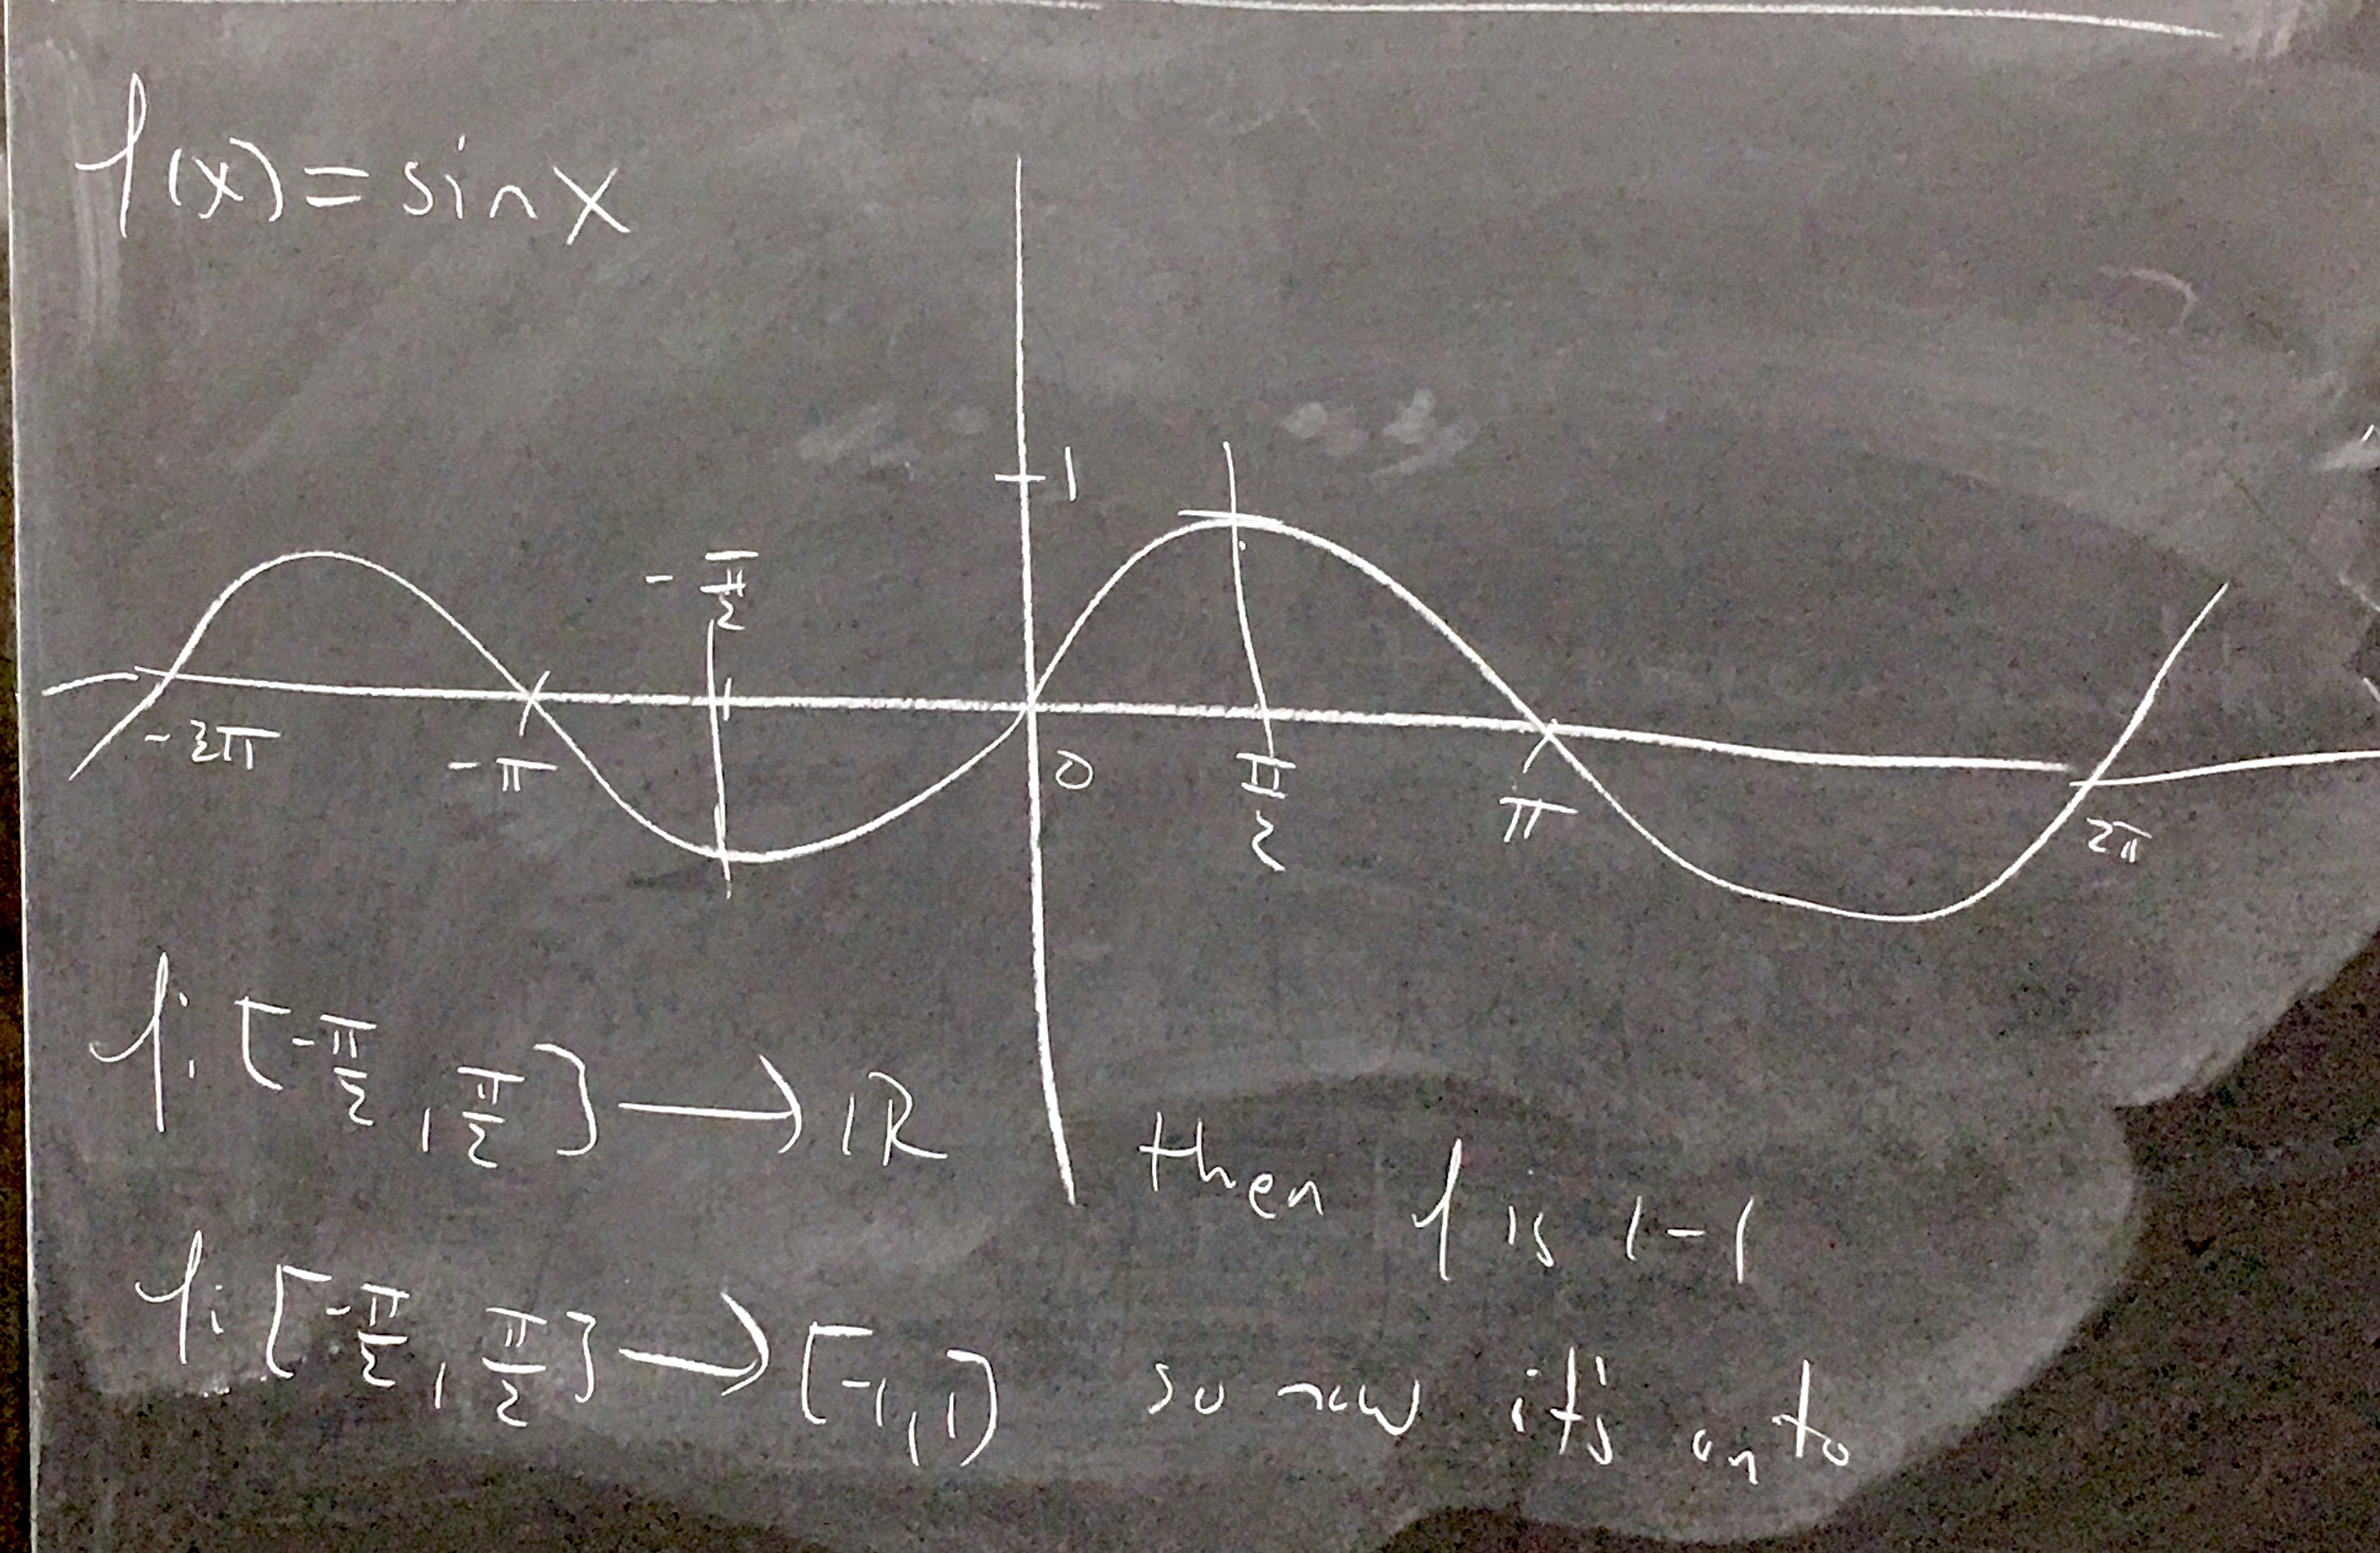 f(x) = sin x
1
-π/2
-2π
-π
0
π/2
π
2π
f: [-π/2, π/2] ⟶ ℝ
then f is 1-1
f: [-π/2, π/2] ⟶ [-1, 1]
so now it's onto